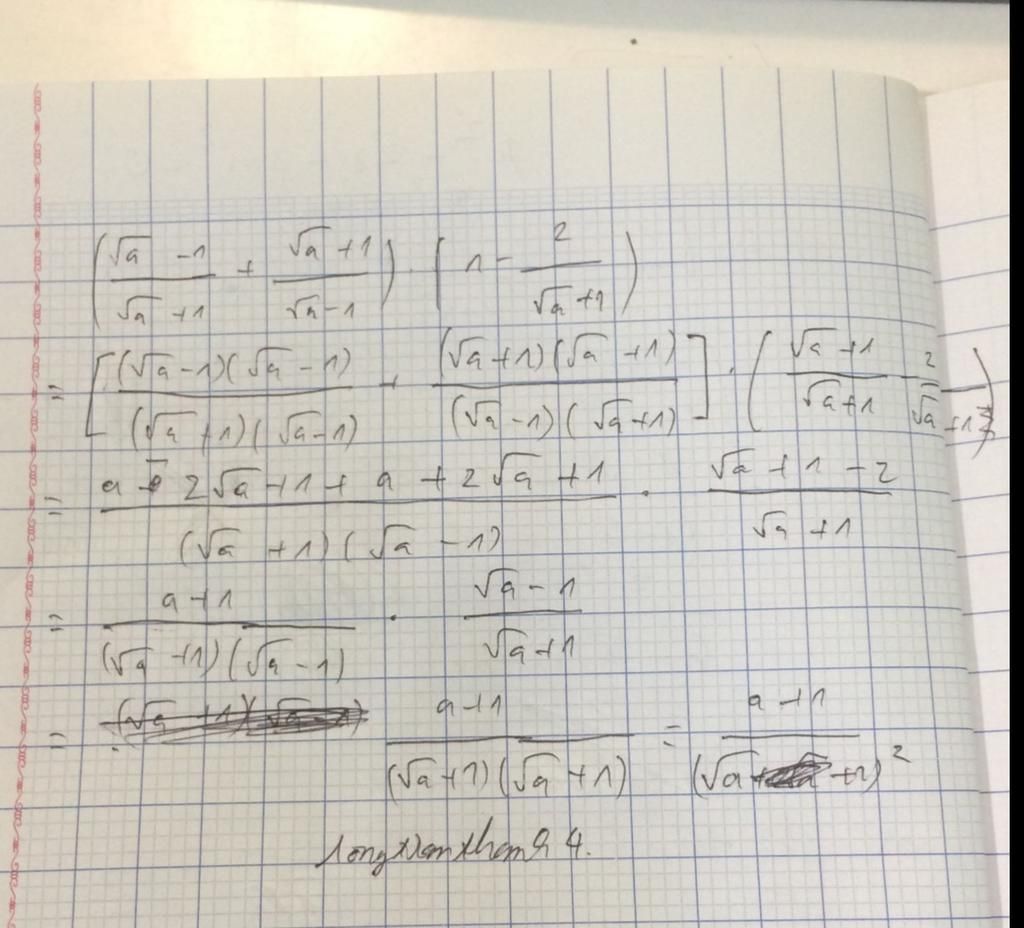 (√a - 1 / √a + 1 + √a + 1 / √a - 1) . (1 - 2 / √a + 1)
= [(√a - 1)(√a - 1) / (√a + 1)(√a - 1) + (√a + 1)(√a + 1) / (√a - 1)(√a + 1)] . (√a + 1 / √a + 1 - 2 / √a + 1)
= a - 2√a + 1 + a + 2√a + 1 / (√a + 1)(√a - 1) . √a + 1 - 2 / √a + 1
= a + 1 / (√a + 1)(√a - 1) . √a - 1 / √a + 1
= a + 1 / (√a + 1)(√a + 1) = a + 1 / (√a + 1)²